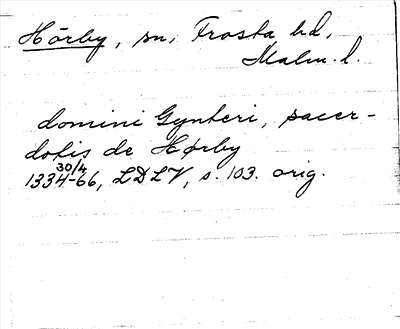 Hörby, sn, Frosta hd,
Malm. l.
domini Gynteri, sacer-
dotis de Hørby
30/4
1334-66, LDLV, s. 103. orig.